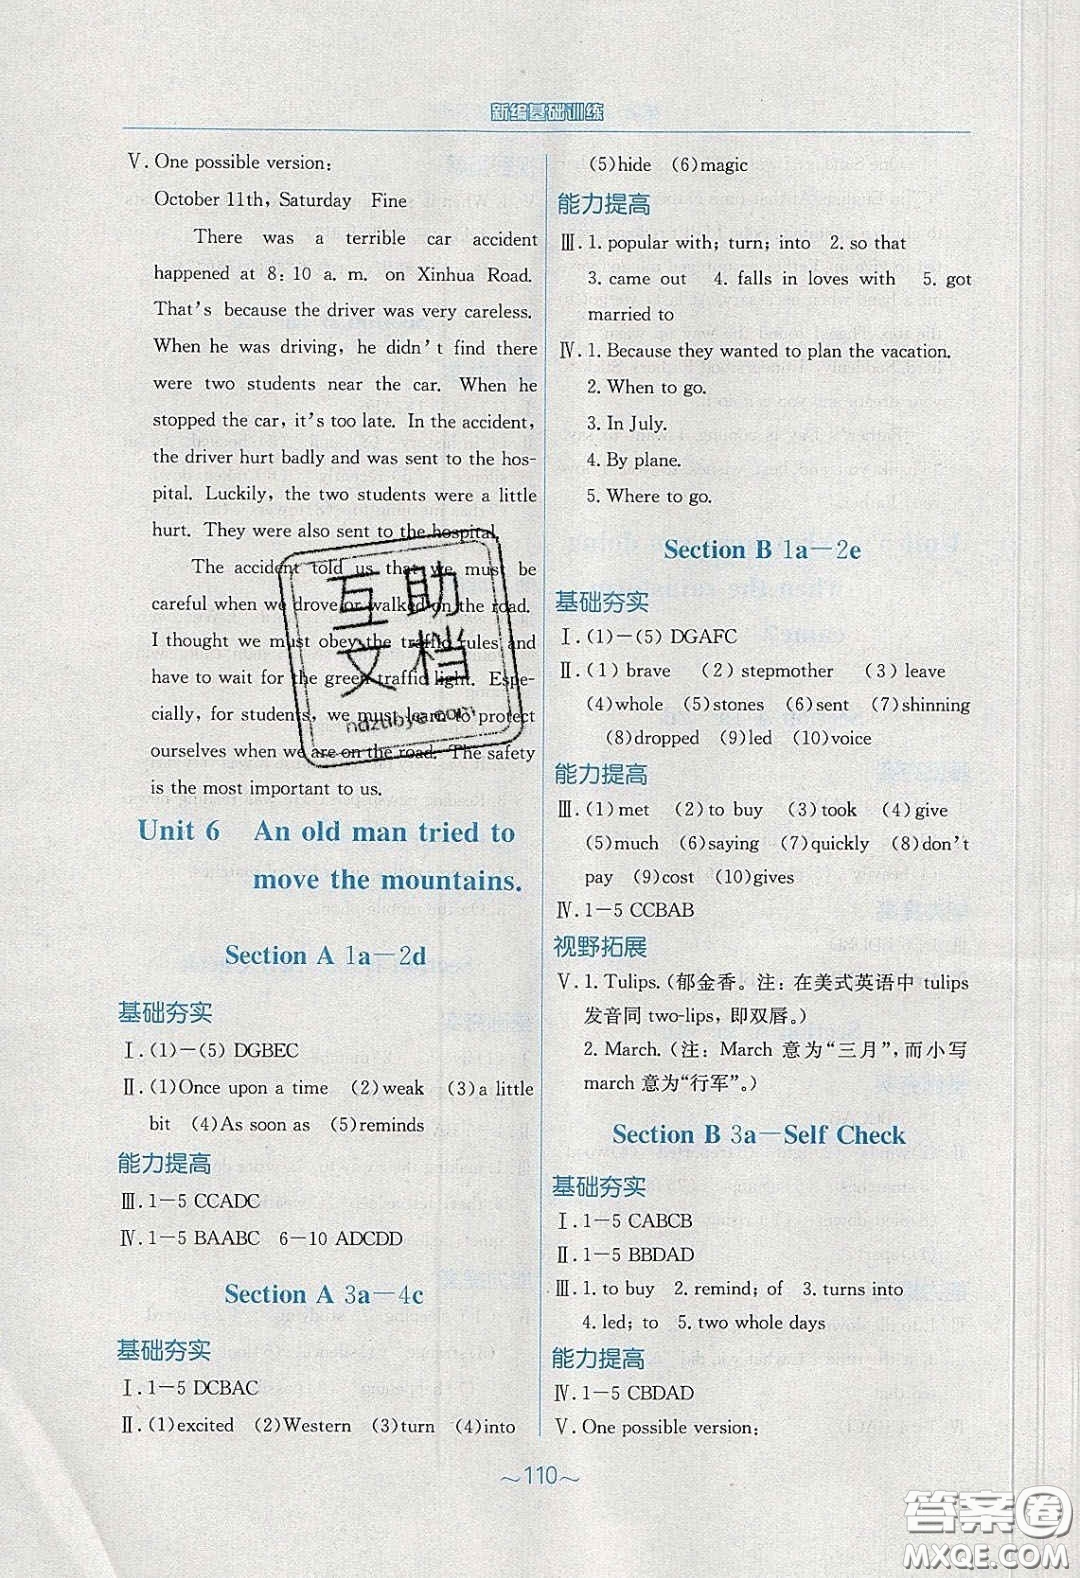 新编基础训练
Ⅴ. One possible version:
October 11th, Saturday Fine
There was a terrible car accident
happened at 8:10 a. m. on Xinhua Road.
That's because the driver was very careless.
When he was driving, he didn't find there
were two students near the car. When he
stopped the car, it's too late. In the accident,
the driver hurt badly and was sent to the hos-
pital. Luckily, the two students were a little
hurt. They were also sent to the hospital.
The accident told us that we must be
careful when we drove or walked on the road.
I thought we must obey the traffic rules and
have to wait for the green traffic light. Espe-
cially, for students, we must learn to protect
ourselves when we are on the road. The safety
is the most important to us.
Unit 6 An old man tried to
move the mountains.
Section A 1a—2d
基础夯实
Ⅰ. (1)—(5) DGBEC
Ⅱ. (1)Once upon a time (2)weak (3)a little
bit (4)As soon as (5)reminds
能力提高
Ⅲ. 1—5 CCADC
Ⅳ. 1—5 BAABC 6—10 ADCDD
Section A 3a—4c
基础夯实
Ⅰ. 1—5 DCBAC
Ⅱ. (1)excited (2)Western (3)turn (4)into
(5)hide (6)magic
能力提高
Ⅲ. 1. popular with; turn; into 2. so that
3. came out 4. falls in loves with 5. got
married to
Ⅳ. 1. Because they wanted to plan the vacation.
2. When to go.
3. In July.
4. By plane.
5. Where to go.
Section B 1a—2e
基础夯实
Ⅰ. (1)—(5) DGAFC
Ⅱ. (1) brave (2) stepmother (3) leave
(4)whole (5)stones (6)sent (7)shinning
(8)dropped (9)led (10)voice
能力提高
Ⅲ. (1)met (2)to buy (3)took (4)give
(5)much (6)saying (7)quickly (8)don't
pay (9)cost (10)gives
Ⅳ. 1—5 CCBAB
视野拓展
Ⅴ. 1. Tulips. (郁金香。注：在美式英语中 tulips
发音同 two-lips, 即双唇。)
2. March. (注：March 意为“三月”, 而小写
march 意为“行军”。)
Section B 3a—Self Check
基础夯实
Ⅰ. 1—5 CABCB
Ⅱ. 1—5 BBDAD
Ⅲ. 1. to buy 2. remind; of 3. turns into
4. led; to 5. two whole days
能力提高
Ⅳ. 1—5 CBDAD
Ⅴ. One possible version:
～110～
互助
文档
ndzubye.com
答案圈
MXQE.COM